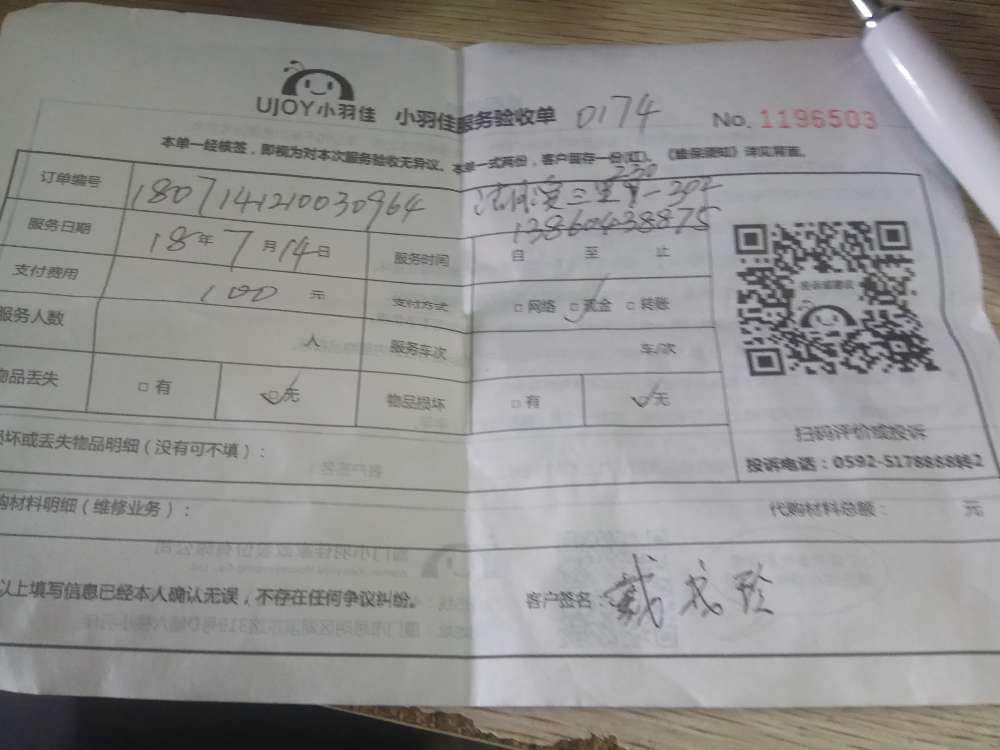 UJOY小羽佳 小羽佳服务验收单 0174 No. 1196503
本单一经核签，即视为对本次服务验收无异议。本单一式两份，客户留存一份(红)。《验保须知》详见背面。
订单编号 1807141210030964
230
三里 302
13860438875
服务日期 18年7月14日 服务时间 自 至 止
支付费用 100 元 支付方式 □网络 □现金 □转账
服务人数 人 服务车次 车/次
物品丢失 □有 □无 物品损坏 □有 □无
扫码评价或投诉
投诉电话：0592-5178888转2
损坏或丢失物品明细（没有可不填）：
购材料明细（维修业务）： 代购材料总额： 元
以上填写信息已经本人确认无误，不存在任何争议纠纷。 客户签名：戴 珍